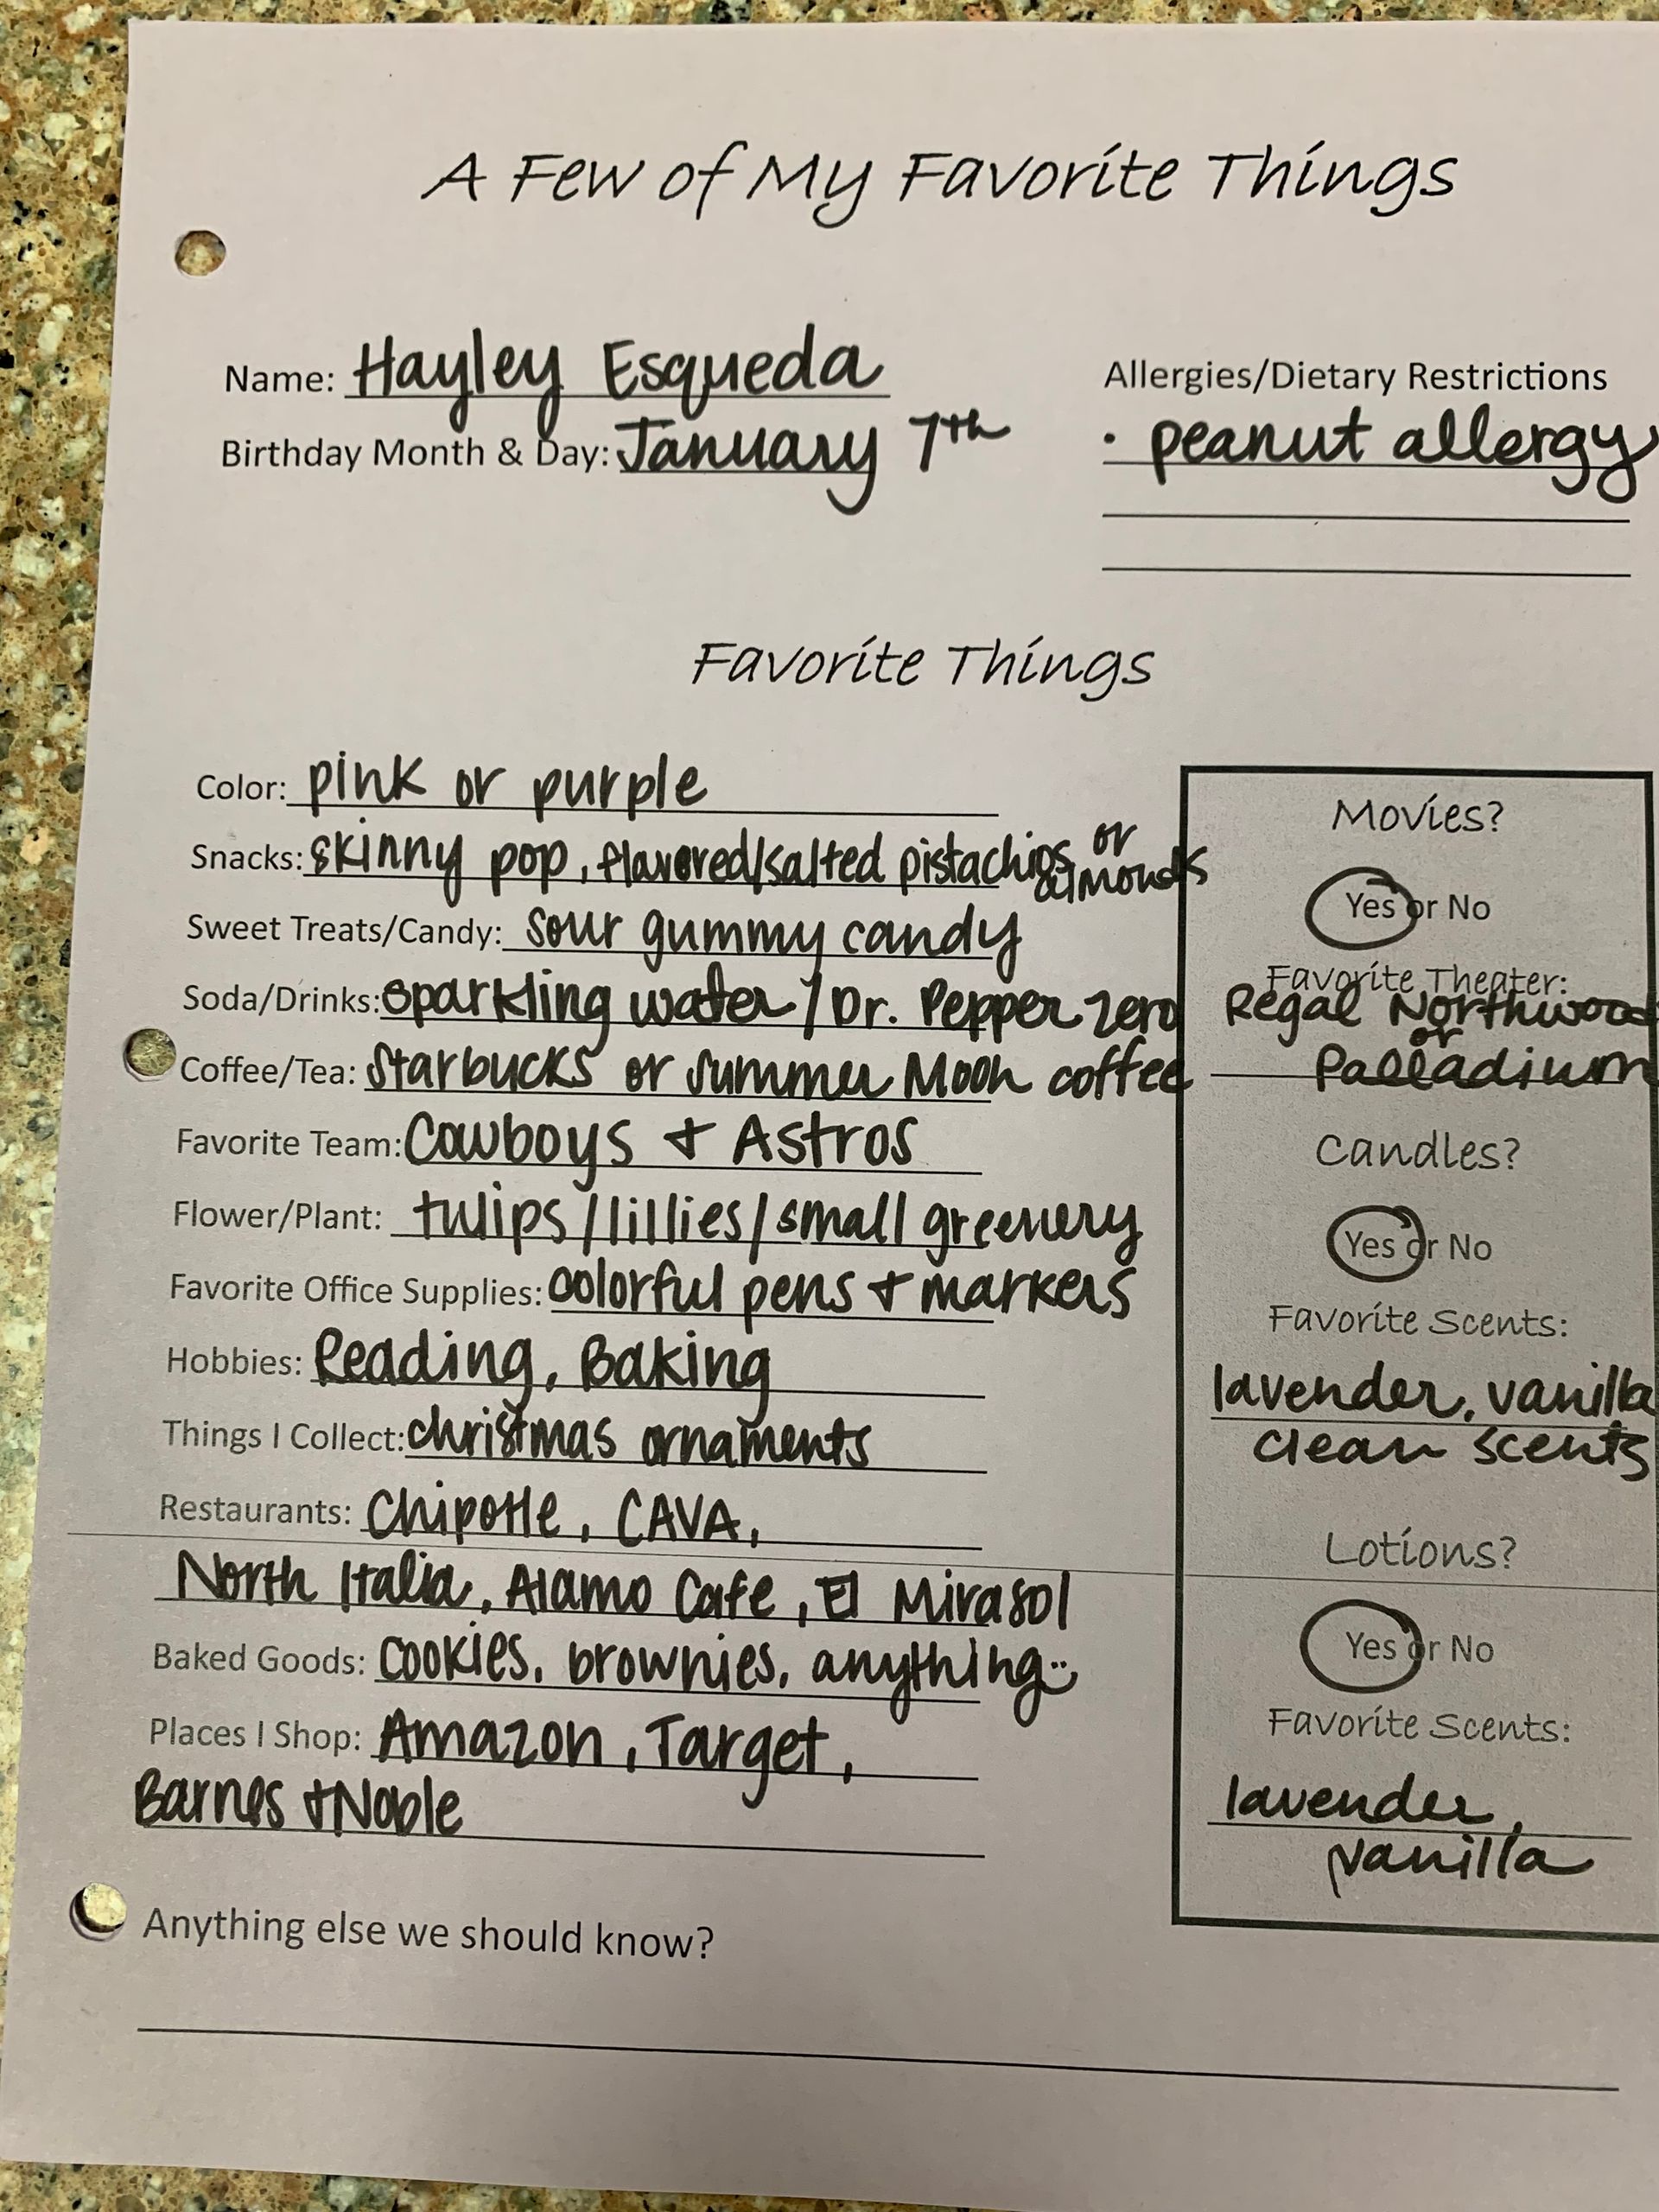 A Few of My Favorite Things
Name: Hayley Esqueda
Birthday Month & Day: January 7th
Allergies/Dietary Restrictions
• peanut allergy
Favorite Things
Color: pink or purple
Snacks: skinny pop, flavored/salted pistachios or almonds
Sweet Treats/Candy: sour gummy candy
Soda/Drinks: sparkling water/Dr. Pepper zero
Coffee/Tea: Starbucks or Summer Moon coffee
Favorite Team: Cowboys + Astros
Flower/Plant: tulips/lillies/small greenery
Favorite Office Supplies: colorful pens + markers
Hobbies: Reading, Baking
Things I Collect: christmas ornaments
Restaurants: Chipotle, CAVA,
North Italia, Alamo Cafe, El Mirasol
Baked Goods: cookies, brownies, anything :)
Places I Shop: Amazon, Target,
Barnes + Noble
Movies?
Yes or No
Favorite Theater:
Regal Northwood
or
Palladium
Candles?
Yes or No
Favorite Scents:
lavender, vanilla
clean scents
Lotions?
Yes or No
Favorite Scents:
lavender,
vanilla
Anything else we should know?